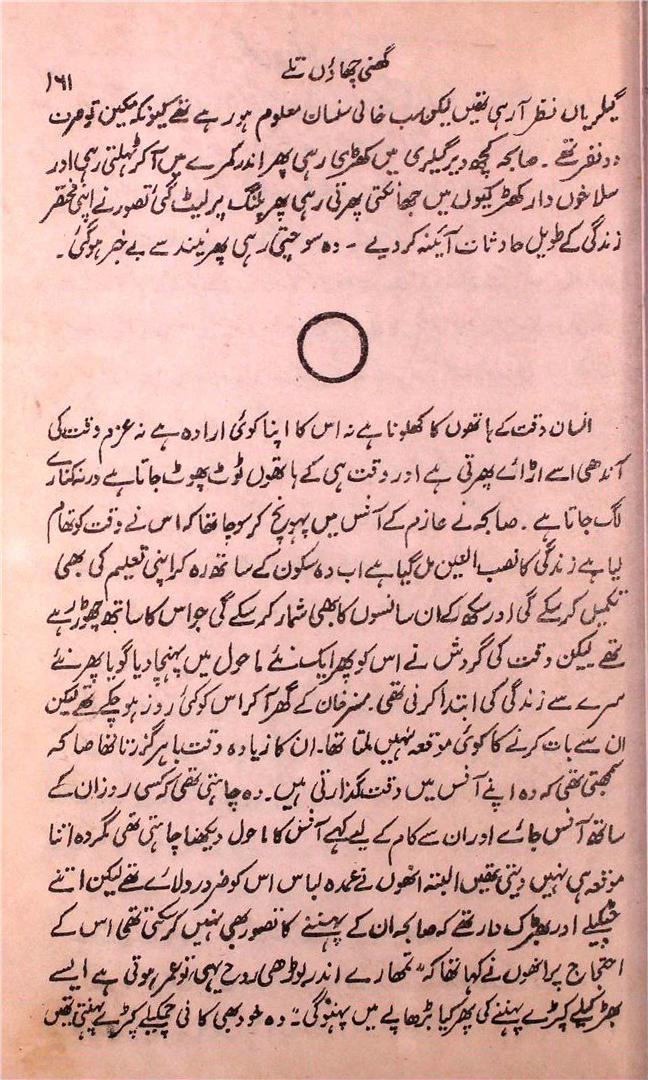 گھنی چھاؤں تلے
۱۶۱
گیلریاں نظر آرہی تھیں لیکن سب خالی سنسان معلوم ہو رہے تھے کیونکہ مکین تو صرف
دو نفر تھے ۔ صابحہ کچھ دیر گیلری میں کھڑی رہی پھر اندر کمرے میں آکر ٹہلتی رہی اور
سلاخوں دار کھڑکیوں میں جھانکتی پھرتی رہی پھر پلنگ پر لیٹ گئی تصور نے اپنی مختصر
زندگی کے طویل حادثات آئینہ کر دیے ۔ وہ سوچتی رہی پھر نیند سے بے خبر ہوگئی۔
انسان وقت کے ہاتھوں کا کھلونا ہے نہ اس کا اپنا کوئی ارادہ ہے نہ عزم وقت کی
آندھی اسے اڑائے پھرتی ہے اور وقت ہی کے ہاتھوں ٹوٹ پھوٹ جاتا ہے ورنہ کنارے
لگ جاتا ہے ۔ صابحہ نے عازم کے آفس میں پہونچ کر سوچا تھا کہ اس نے وقت کو تھام
لیا ہے زندگی کا نصب العین مل گیا ہے اب وہ سکون کے ساتھ رہ کر اپنی تعلیم کی بھی
تکمیل کرسکے گی اور سکھ کے ان سانسوں کا بھی شمار کرسکے گی جو اس کا ساتھ چھوڑ رہے
تھے لیکن وقت کی گردش نے اس کو پھر ایک نئے ماحول میں پہنچا دیا گویا پھر نئے
سرے سے زندگی کی ابتدا کرنی تھی ۔ خان کے گھر آکر اس کو کئی روز ہو چکے تھے لیکن
ان سے بات کرنے کا کوئی موقعہ نہیں ملتا تھا۔ ان کا زیادہ وقت باہر گزرتا تھا صابحہ
سمجھتی تھی کہ وہ اپنے آفس میں وقت گذارتی ہیں۔ وہ چاہتی تھی کہ کسی روز ان کے
ساتھ آفس جائے اور ان سے کام کے لیے کہے آفس کا ماحول دیکھنا چاہتی تھی مگر وہ اتنا
موقعہ ہی نہیں دیتی تھیں البتہ انھوں نے عمدہ لباس اس کو ضرور دلائے تھے لیکن اتنے
چمکیلے اور بھڑک دار تھے کہ صابحہ ان کے پہننے کا تصور بھی نہیں کرسکتی تھی اس کے
احتجاج پر انھوں نے کہا تھا کہ "تمھارے اندر بوڑھی روح ہے یہی تو عمر ہوتی ہے ایسے
بھڑکیلے کپڑے پہننے کی پھر کیا بڑھاپے میں پہنوگی"۔ وہ خود بھی کافی چمکیلے کپڑے پہنتی تھیں